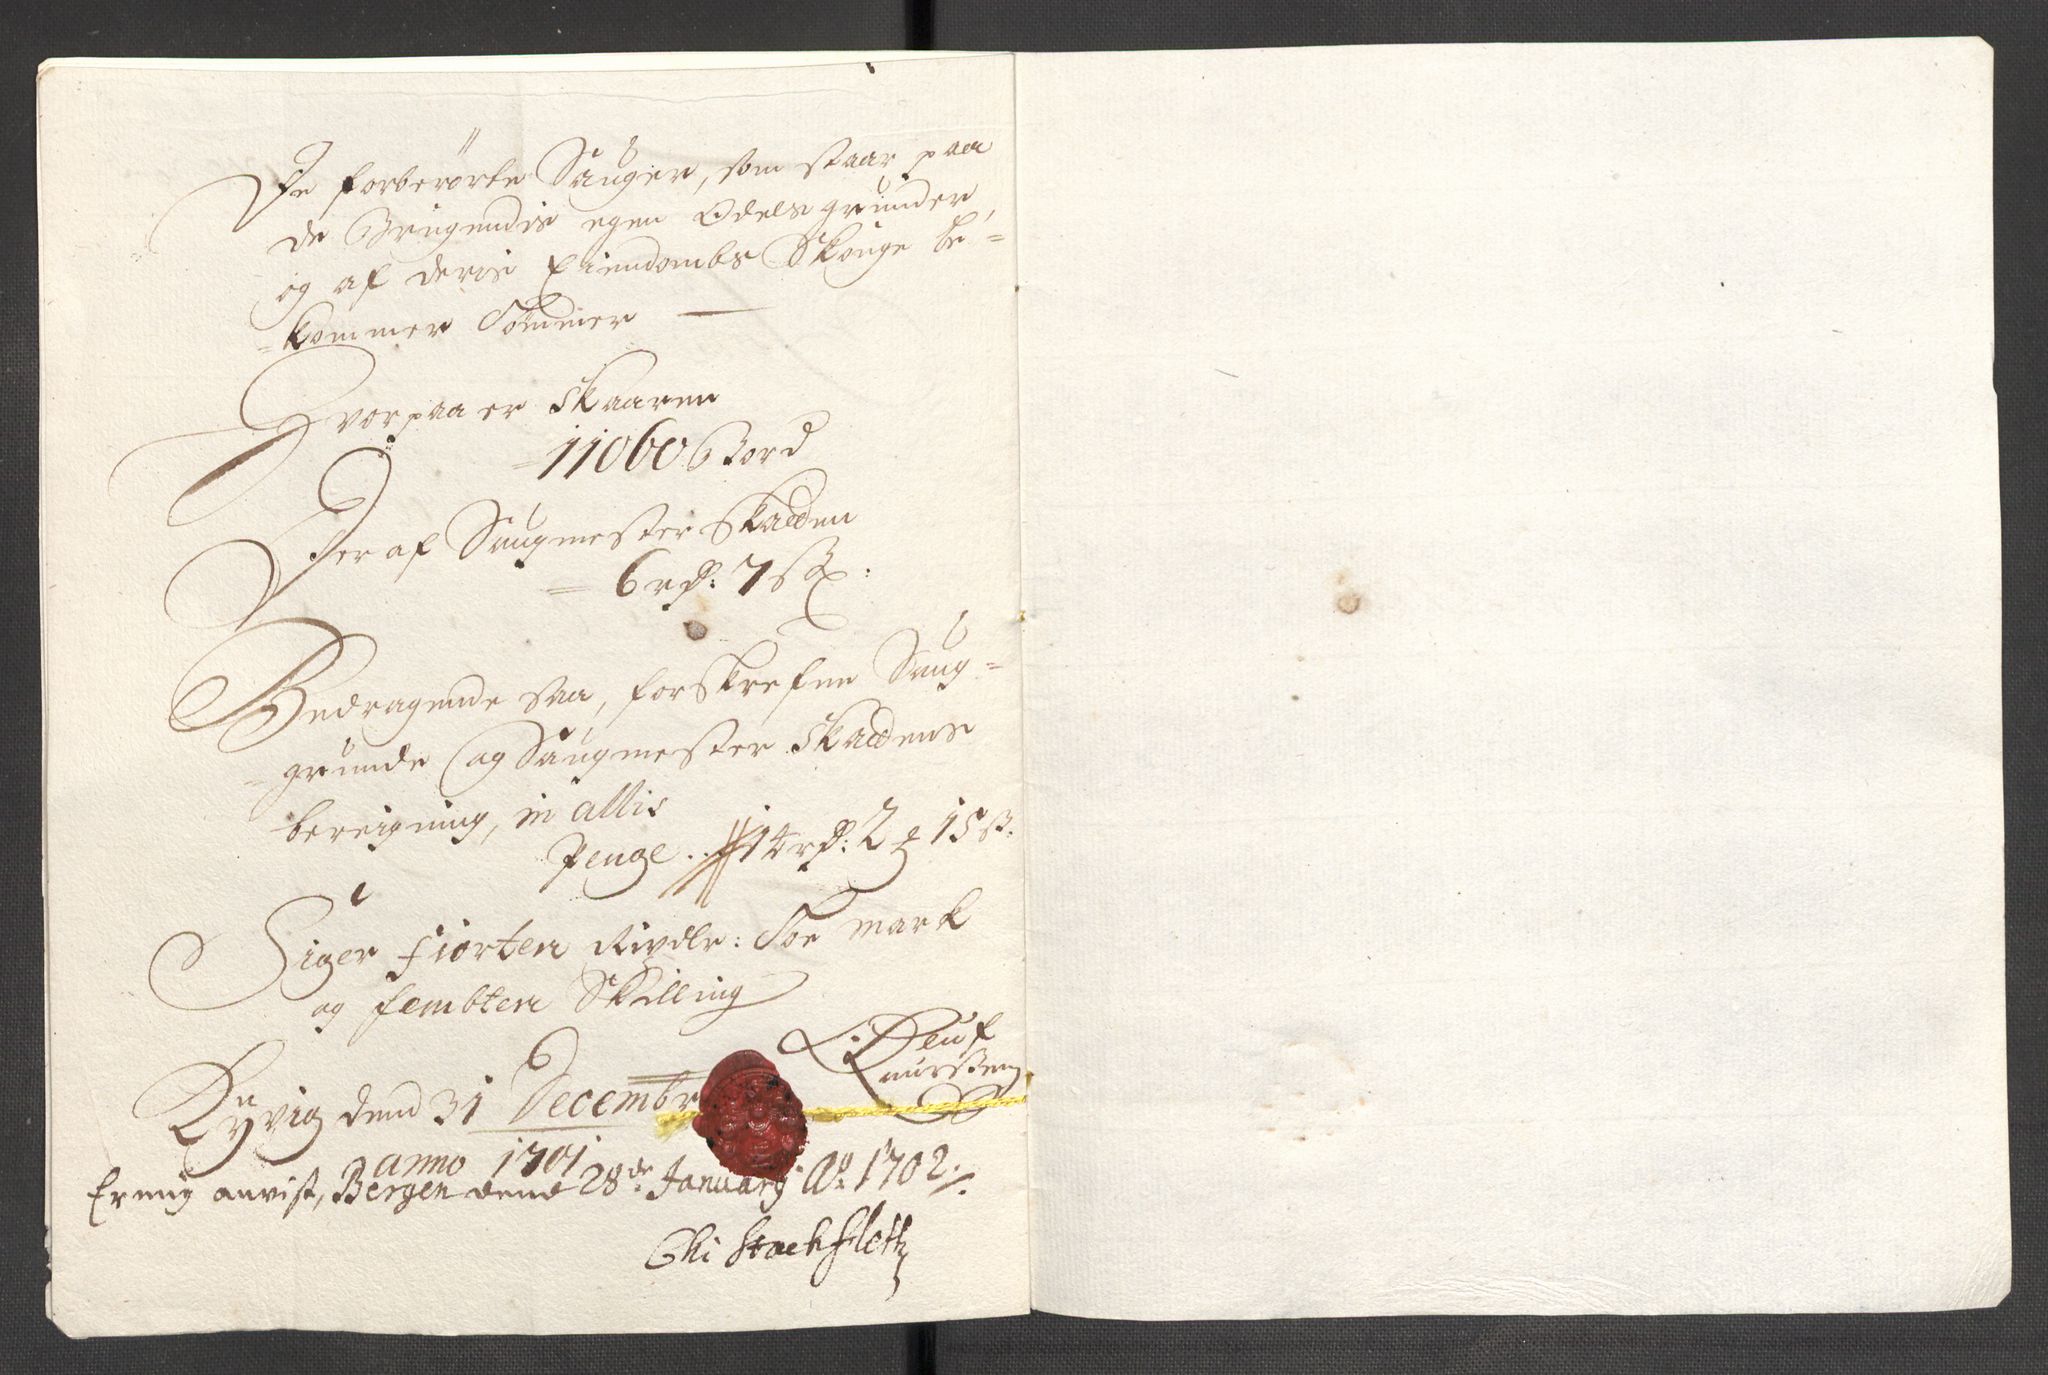 De forberørte Sauger, som staar paa
de Brugendis egen Odels grunder,
og af deris Eiendombs Skouge be-
-kommer Tømmer
Hvorpaa er Skaaren
11060 Bord
Deraf Saugmester Skatten
= 6 rd: 7 s:
Bedragende saa, forskrefne Saug-
-grunde og Saugmester Skattens
beregning, in allis
Penge .. 14 rd: 2 15 s.
Siger fiorten Rixdlr: Toe mark
og fembten Skilling
Ryvig dend 31 Decembr
anno 1701
Er mig anvist, Bergen dend 28de January Ao 1702.
Chr Stockfleth